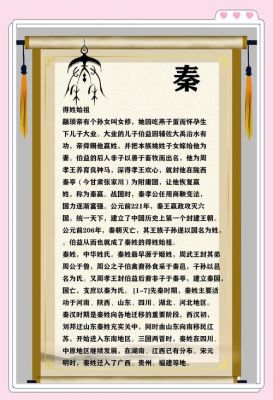 秦
得姓始祖
颛顼帝有个孙女叫女修，她因吃燕子蛋而怀孕生
下儿子大业，大业的儿子伯益因辅佐大禹治水有
功，帝舜赐他嬴姓，并把本族姚姓子女嫁给他为
妻，伯益的后人非子以善于畜牧而出名，他为周
孝王养育良种马，深得孝王欢心，就封他在陇西
秦亭（今甘肃张家川）为附庸国，让他恢复嬴
姓，称为秦嬴。战国时，秦孝公任用商鞅变法，
国力逐渐富强。公元前221年，秦王嬴政攻灭六
国，统一天下，建立了中国历史上第一个封建王朝。
公元前206年，秦朝灭亡，其王族子孙遂以国名为姓，
，伯益从而也就成了秦姓的得姓始祖.
秦，中华姓氏，秦姓最早源于姬姓，周武王封其弟
周公于鲁，周公之子伯禽裔孙食采于秦邑，子孙以邑
名为氏，又周孝王封伯益后裔非子于秦亭，建立秦国，
国亡，支庶以秦为氏。[1-7]先秦时期，秦姓主要活
动于河南、陕西、山东、四川、湖北、河北地区。
秦汉时期是秦姓向各地迁移的重要阶段，西汉初，
刘邦迁山东秦姓充实关中，同时由山东向南移民江
苏，开始进入东南地区。三国两晋时，秦姓在四川、
中原地区继续发展，在湖南、江西已有分布，宋元
明时，秦姓迁入了广西、贵州、福建等地。